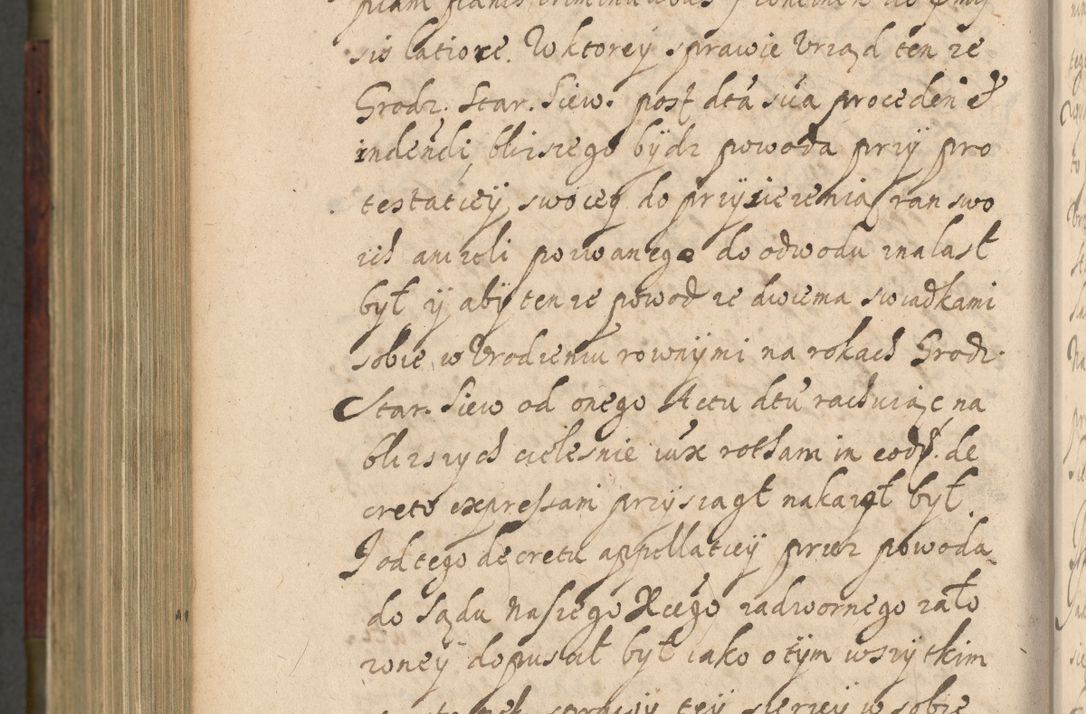 sis latiore. W ktorey sprawie Vrząd ten ze
Grodz. Star. Siew. post dta sua proceden &
indenci, blizszego bydz powoda przy pro
testatiey swoiey do przysiezenia ran swo
ich anizeli pozwanego do odwodu znalazł
był y aby tenze powod ze dwiema swiadkami
sobie w Vrodzeniu rownymi na rokach Grodz.
Star. Siew od onego Actu dtu rachuiąc na
blizszych cielesnie iux rotham in eod. de
creto expressam przysiągł nakazał był.
I od tego decretu appellatiey przez powoda
do Sądu Naszego Xcego zadwornego zało
zoney dopuscił był iako o tym wszytkim
sprawy tey szerzey w sobie